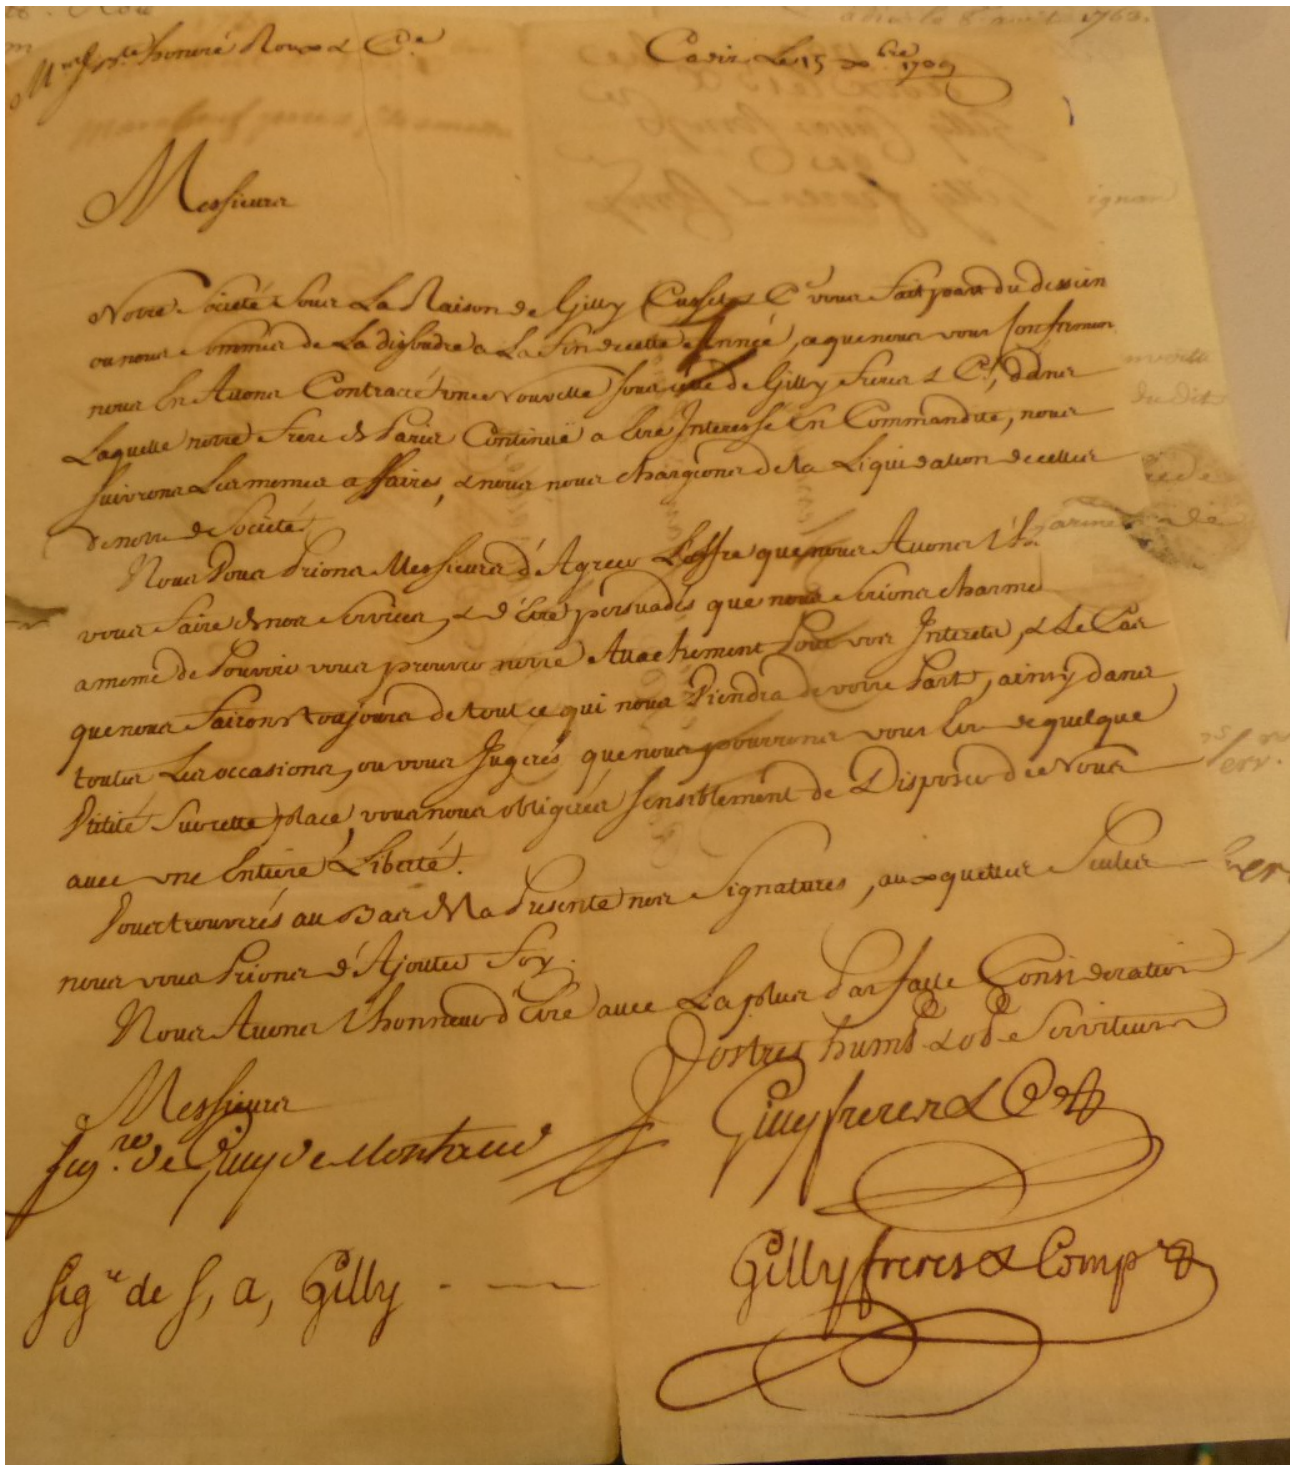 honoré Roux & C.e
Cadix Le 15 xbre
Messieurs
Notre Société sous La Raison de Gilly Cusset & Ce vous fait part du dessein
ou nous sommes de La dissoudre a La fin de cette Année, a que nous vous Confirmons
nous En Avons Contracté une Nouvelle sous celle de Gilly freres & Ce, dans
Laquelle notre frere de Paris Continuë a être Interessé En Commandite, nous
suivrons Les memes affaires, & nous nous chargeons de la Liquidation de celles
de notre de Société
Nous Vous Prions Messieurs d'Agreer L'offre que nous Avons L'h
vous faire de nos Services, & d'être persuadés que nous serions charmés
a meme de Pouvoir vous prouver notre Attachement Pour vos Interets, & Le Cas
que nous fairons toujours de tout ce qui nous Viendra de votre Part, ainsy dans
toutes Les occasions, ou vous Jugerés que nous pourrons vous être de quelque
Utilité Sur cette place, vous nous obligeres sensiblement de Disposer de Nous
avec une Entiere Liberté.
Vous trouverés au Bas de La Presente nos Signatures, auxquelles Seules
nous vous Prions d'Ajouter Foy.
Nous Avons L'honneur d'être avec La plus Parfaite Consideration
Messieurs
Vostres humb & ob Serviteurs
Sigre de Gilly de Montaud
Gilly freres & Ce
Sige de S, A, Gilly
Gilly freres & Compe